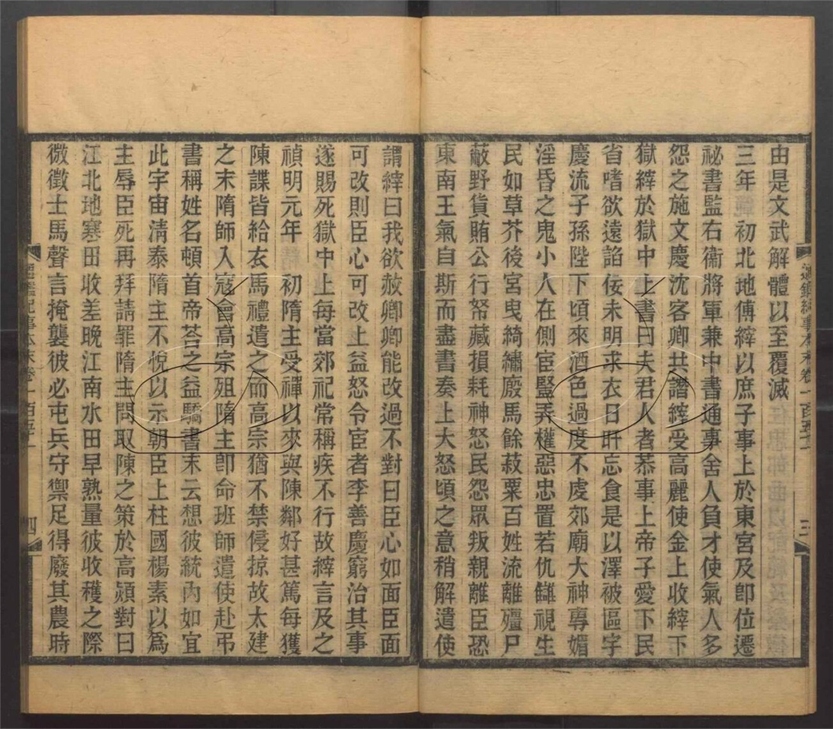 由是文武解體以至覆滅
三年 初北地傅縡以庶子事上於東宮及即位遷
祕書監右衞將軍兼中書通事舍人負才使氣人多
怨之施文慶沈客卿共譖縡受高麗使金上收縡下
獄縡於獄中上書曰夫君人者恭事上帝子愛下民
省嗜欲遠諂佞未明求衣日旰忘食是以澤被區宇
慶流子孫陛下頃來酒色過度不虔郊廟大神專媚
淫昏之鬼小人在側宦豎弄權惡忠直若仇讎視生
民如草芥後宮曳綺繡廄馬餘菽粟百姓流離殭尸
蔽野貨賄公行帑藏損耗神怒民怨眾叛親離臣恐
東南王氣自斯而盡書奏上大怒頃之意稍解遣使
謂縡曰我欲赦卿卿能改過不對曰臣心如面臣面
可改則臣心可改上益怒令宦者李善慶窮治其事
遂賜死獄中上每當郊祀常稱疾不行故縡言及之
禎明元年 初隋主受禪以來與陳鄰好甚篤每獲
陳諜皆給衣馬禮遣之而高宗猶不禁侵掠故太建
之末隋師入寇會高宗殂隋主即命班師遣使赴弔
書稱姓名頓首帝荅之益驕書末云想彼統內如宜
此宇宙清泰隋主不悅以示朝臣上柱國楊素以爲
主辱臣死再拜請罪隋主問取陳之策於高熲對曰
江北地寒田收差晚江南水田早熟量彼收穫之際
微徵士馬聲言掩襲彼必屯兵守禦足得廢其農時
通鑑紀事本末卷一百五十一
三
通鑑紀事本末卷一百五十一
四